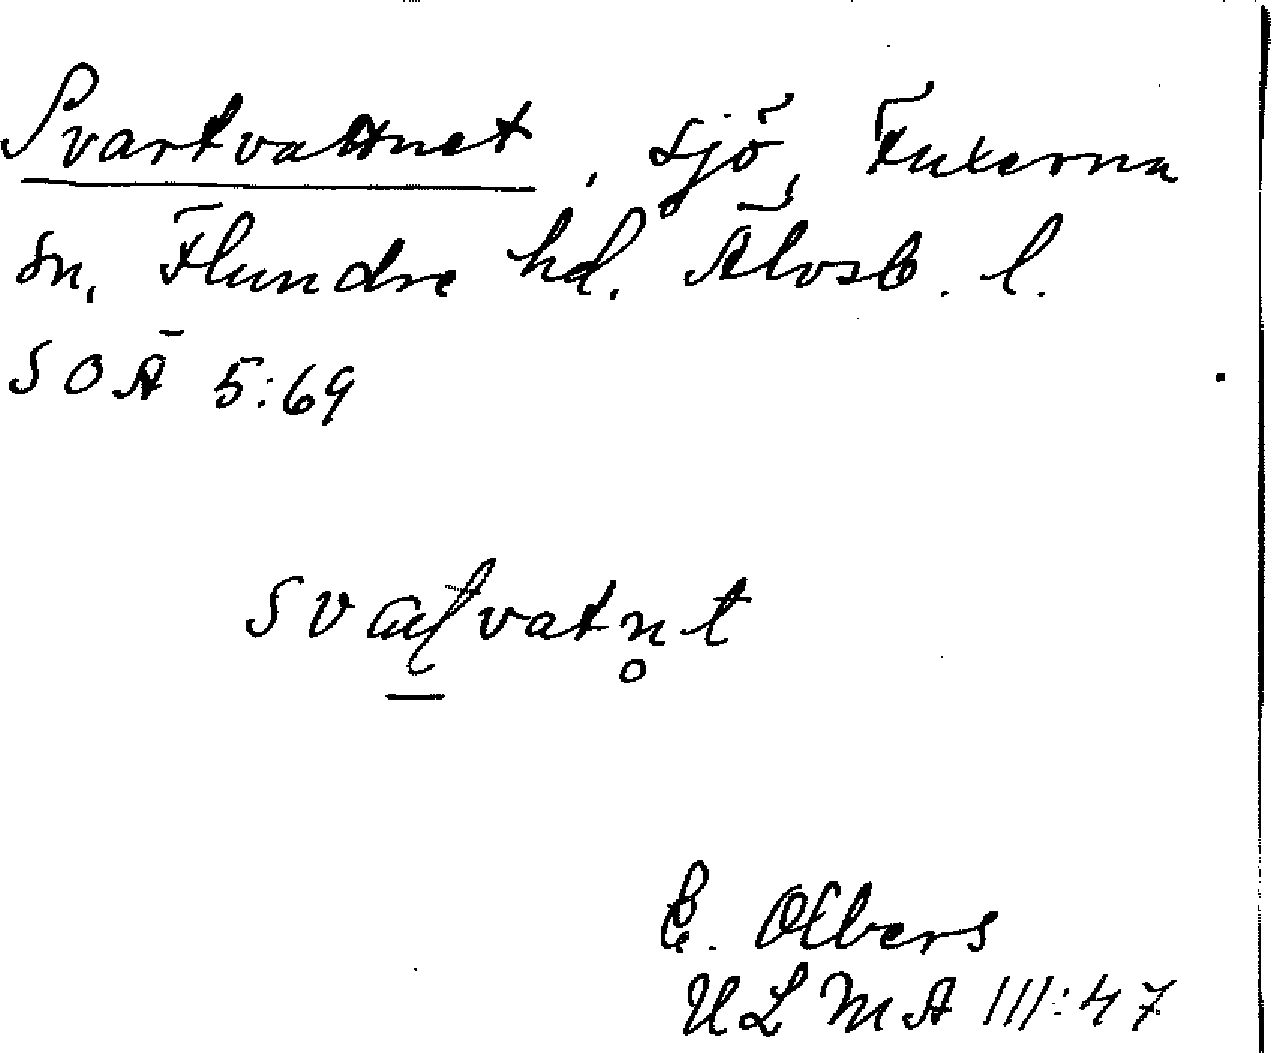 Svartvattnet, sjö, Fuxerna
sn, Flundre hd. Älvsb. l.
SOÄ 5:69
E. Olbers
ULMA 111:47